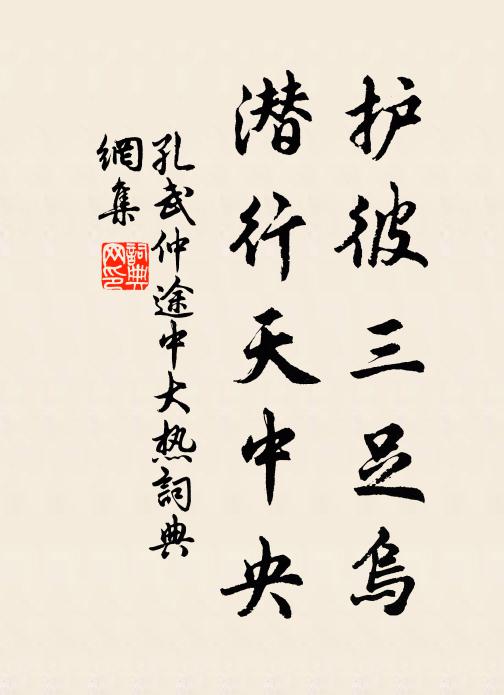 护彼三足乌
潜行天中央
孔武仲途中大热詞典
網集
詞典
网印